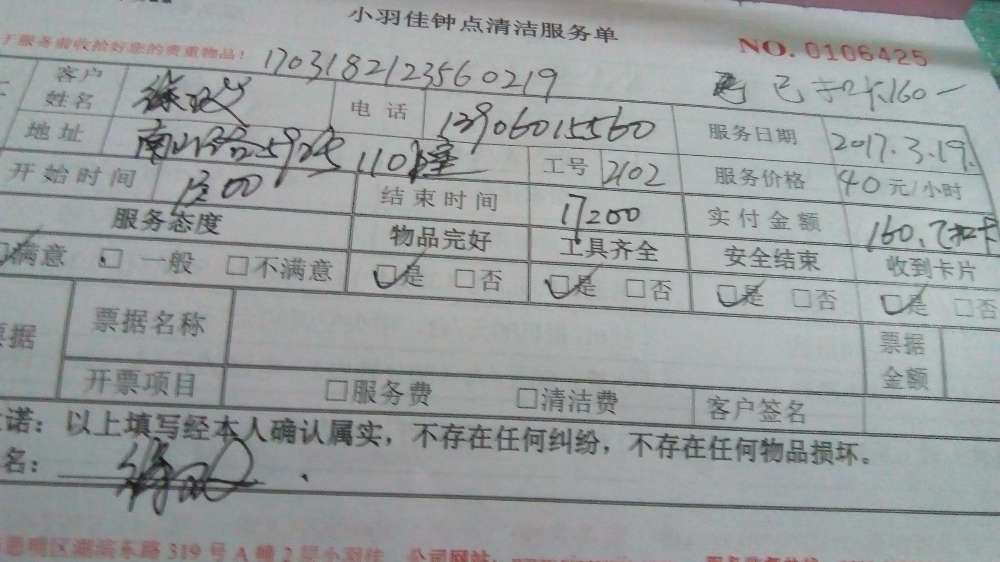 小羽佳钟点清洁服务单
服务前收拾好您的贵重物品！
NO. 0106425
1703182123560219
已扣卡160一
客户姓名 电话 13906015560 服务日期 2017.3.19.
地址 110 工号 2102 服务价格 40元/小时
开始时间 13:00 结束时间 17:00 实付金额 160、已扣卡
服务态度 物品完好 工具齐全 安全结束 收到卡片
☑满意 □一般 □不满意 ☑是 □否 ☑是 □否 ☑是 □否 ☑是 □否
票据 票据名称 票据金额
开票项目 □服务费 □清洁费 客户签名
诺：以上填写经本人确认属实，不存在任何纠纷，不存在任何物品损坏。
名：
思明区湖滨东路319号A幢2层小羽佳 公司网站：